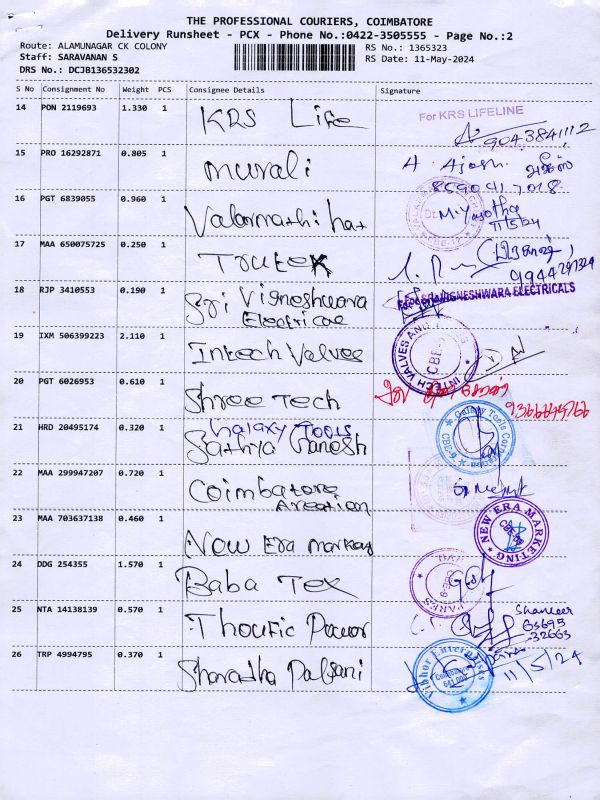 THE PROFESSIONAL COURIERS, COIMBATORE
Delivery Runsheet - PCX - Phone No.:0422-3505555 - Page No.:2
Route: ALAMUNAGAR CK COLONY RS No.: 1365323
Staff: SARAVANAN S RS Date: 11-May-2024
DRS No.: DCJB136532302
S No Consignment No Weight PCS Consignee Details Signature
14 PON 2119693 1.330 1 KRS Life For KRS LIFELINE
9043841112
15 PRO 16292871 0.805 1 Murali A. Ajosh
8590417018
16 PGT 6839055 0.960 1 Valarmathi hat Dr. M. Yasotha
11/5/24
17 MAA 650075725 0.250 1 Trutex
9944297324
18 RJP 3410553 0.190 1 Sri Vigneshwara VIGNESHWARA ELECTRICALS
Electrical
19 IXM 506399223 2.110 1 Intech Valves INTECH VALVES AND
CBE-
20 PGT 6026953 0.610 1 Shree Tech
21 HRD 20495174 0.320 1 Galaxy Tools Galaxy Tools Corporation
Sathya Ganesh CBE-9
22 MAA 299947207 0.720 1 Coimbatore
Areation
23 MAA 703637138 0.460 1 New Era Markeg NEW ERA MARKETING
24 DDG 254355 1.570 1 Baba Tex
25 NTA 14138139 0.570 1 Thoufic Power Shankeer
65695
32663
26 TRP 4994795 0.370 1 Sharadha Palsani Vibhor Enterprises
Coimbatore
641 009
11/5/24